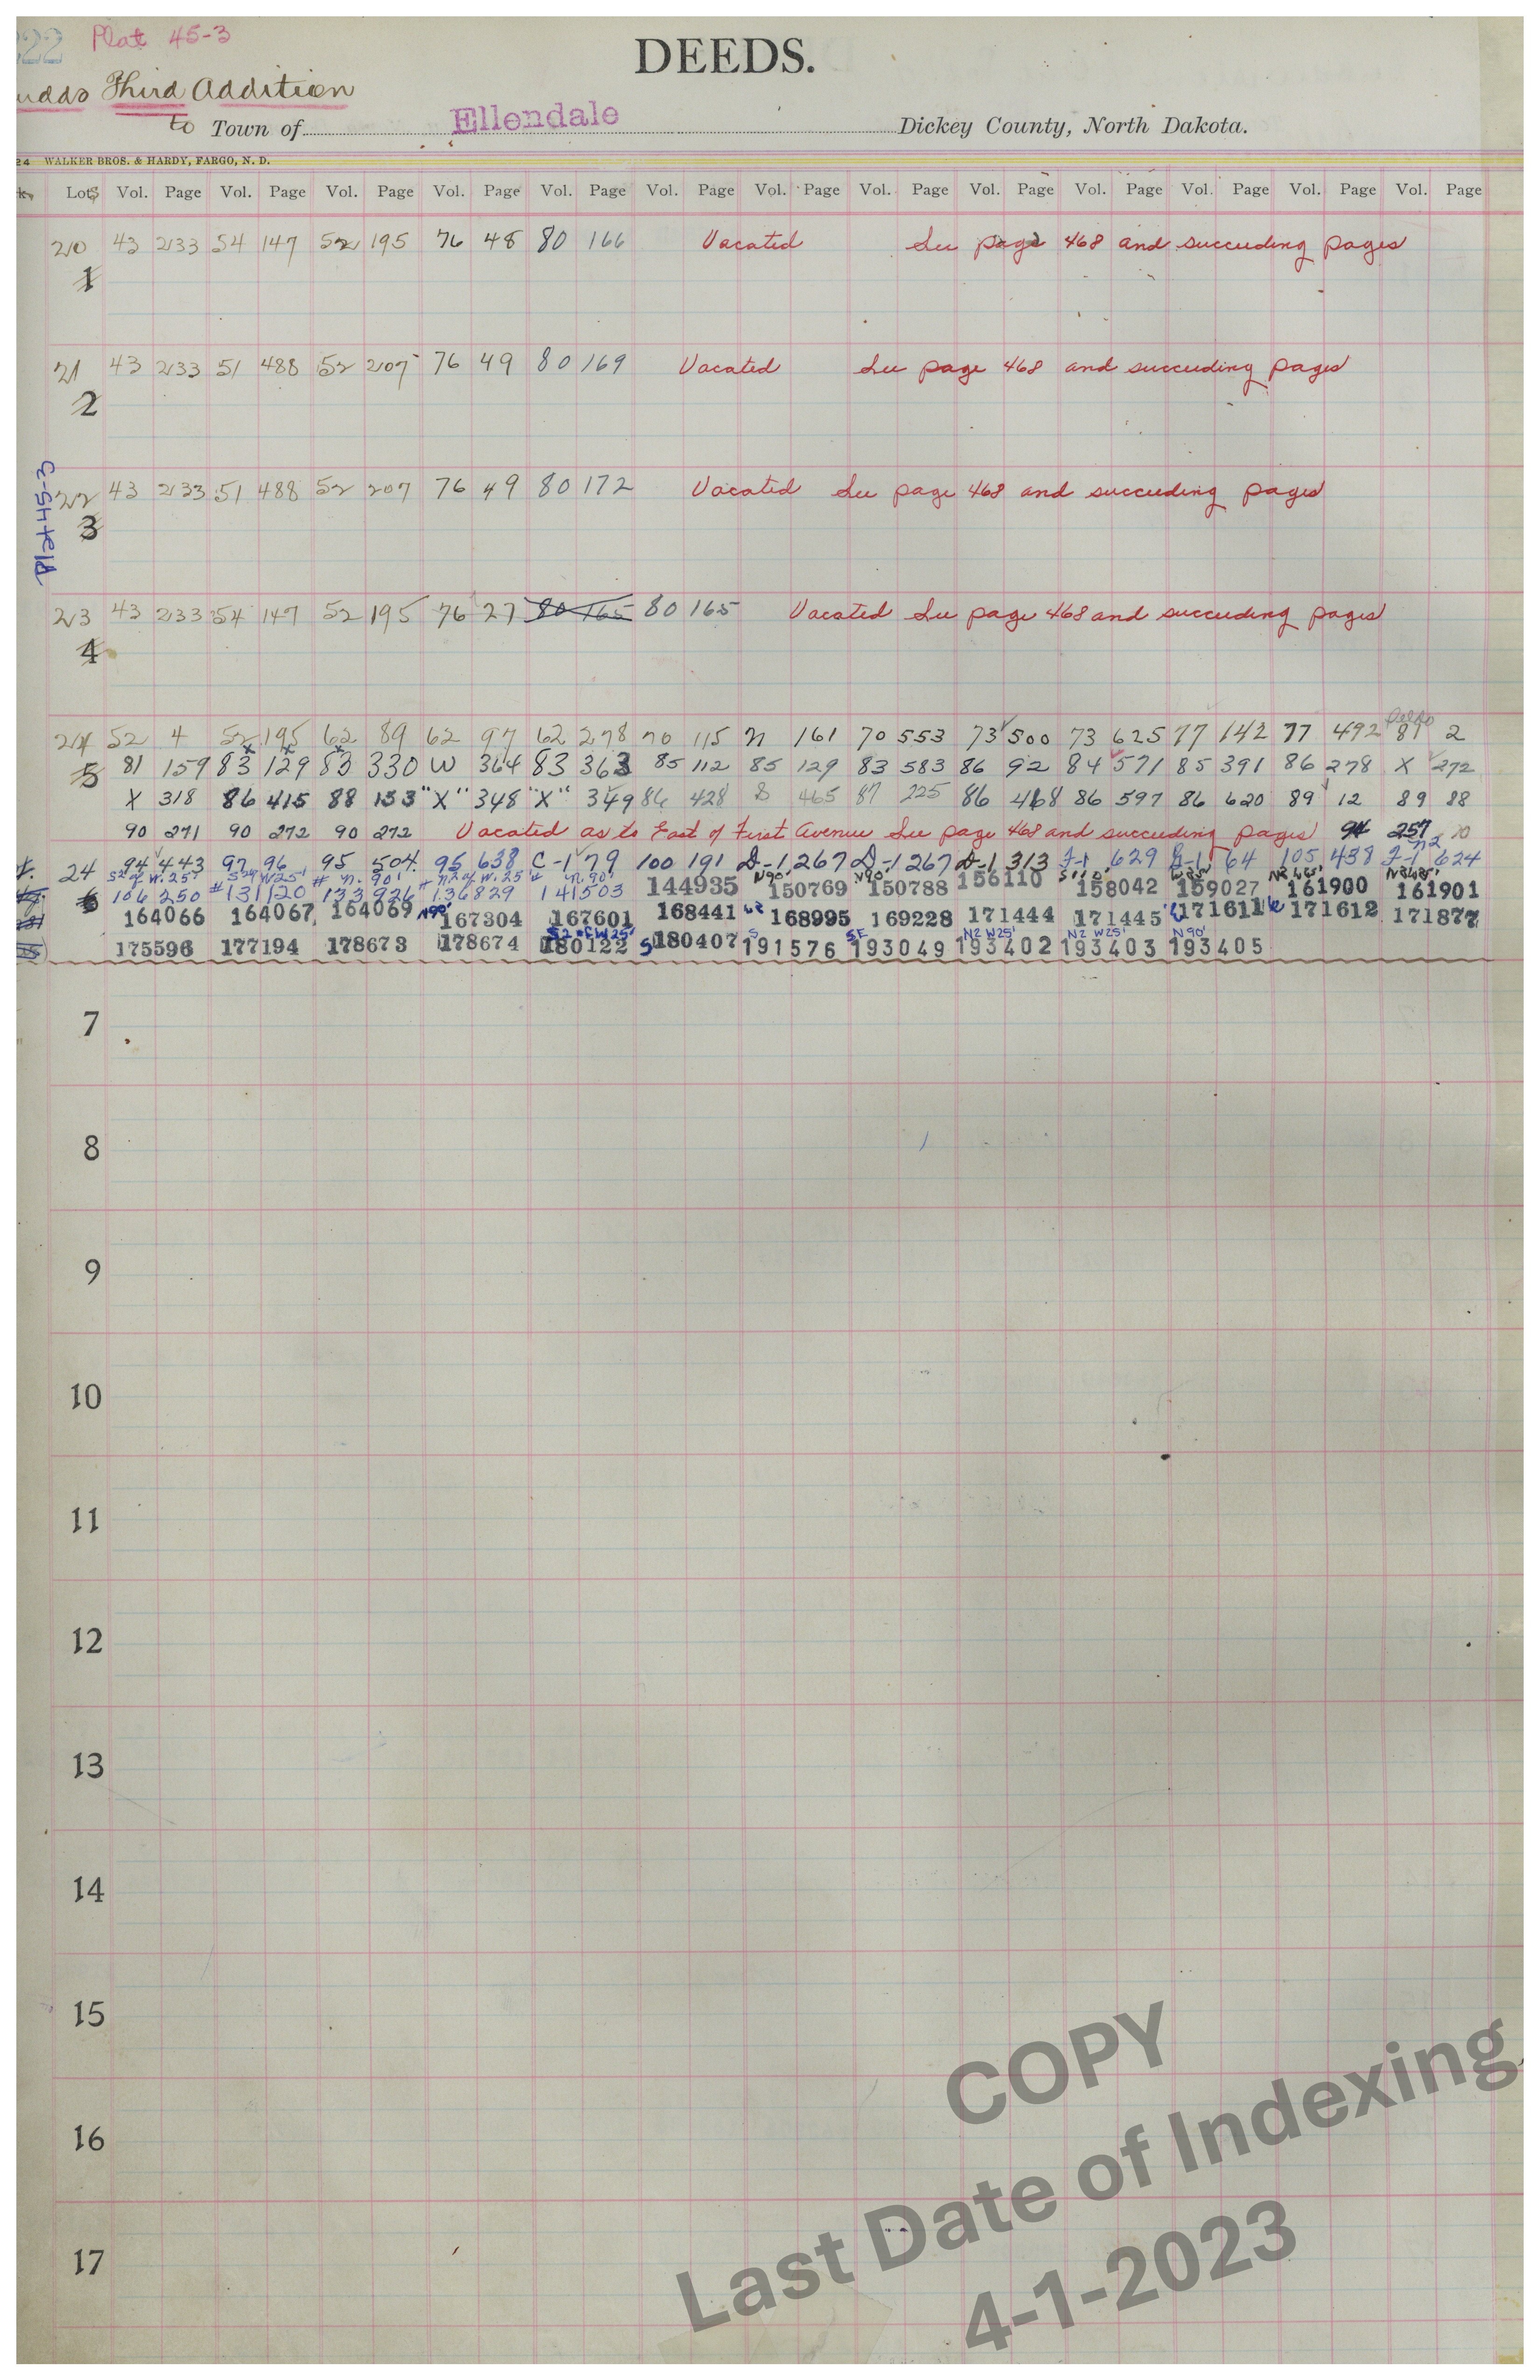 22 Plat 45-3
DEEDS.
udds Third Addition
to Town of Ellendale Dickey County, North Dakota.
24 WALKER BROS. & HARDY, FARGO, N. D.
k. Lots Vol. Page Vol. Page Vol. Page Vol. Page Vol. Page Vol. Page Vol. Page Vol. Page Vol. Page Vol. Page Vol. Page Vol. Page Vol. Page
20 43 233 54 147 52 195 76 48 80 166 Vacated See page 468 and succeeding pages
1
21 43 233 51 488 52 207 76 49 80 169 Vacated See page 468 and succeeding pages
2
Plat 45-3
22 43 233 51 488 52 207 76 49 80 172 Vacated See page 468 and succeeding pages
3
23 43 233 54 147 52 195 76 27 80 165 80 165 Vacated See page 468 and succeeding pages
4
24 52 4 52 195 62 89 62 97 62 278 70 115 n 161 70 553 73 500 73 625 77 142 77 492 81 2
5 81 159 83 129 83 330 W 364 83 363 85 112 85 129 83 583 86 92 84 571 85 391 86 278 X 272
X 318 86 415 88 153 "X" 348 "X" 349 86 428 8 465 87 225 86 468 86 597 86 620 89 12 89 88
90 271 90 272 90 272 Vacated as to East of First Avenue See page 468 and succeeding pages 94 257
24 94 443 97 96 95 504 95 638 C-1 79 100 191 D-1 267 D-1 267 D-1 313 F-1 629 64 105 438 F-1 624
S2 of W.25' S2 of W25' # N. 90' # N.2 of W.25' # N.90' N90' N90' S110' W25'
6 106 250 #131120 133926 136829 141503 144935 150769 150788 156110 158042 159027 161900 161901
164066 164067 164069 N90' 167304 167601 168441 168995 169228 171444 171445 171611 171612 171877
S2 of W25' S SE N2 W25' N2 W25' N90'
175596 177194 178673 178674 180122 S 180407 191576 193049 193402 193403 193405
7
8
9
10
11
12
13
14
15
16
17
COPY
Last Date of Indexing
4-1-2023